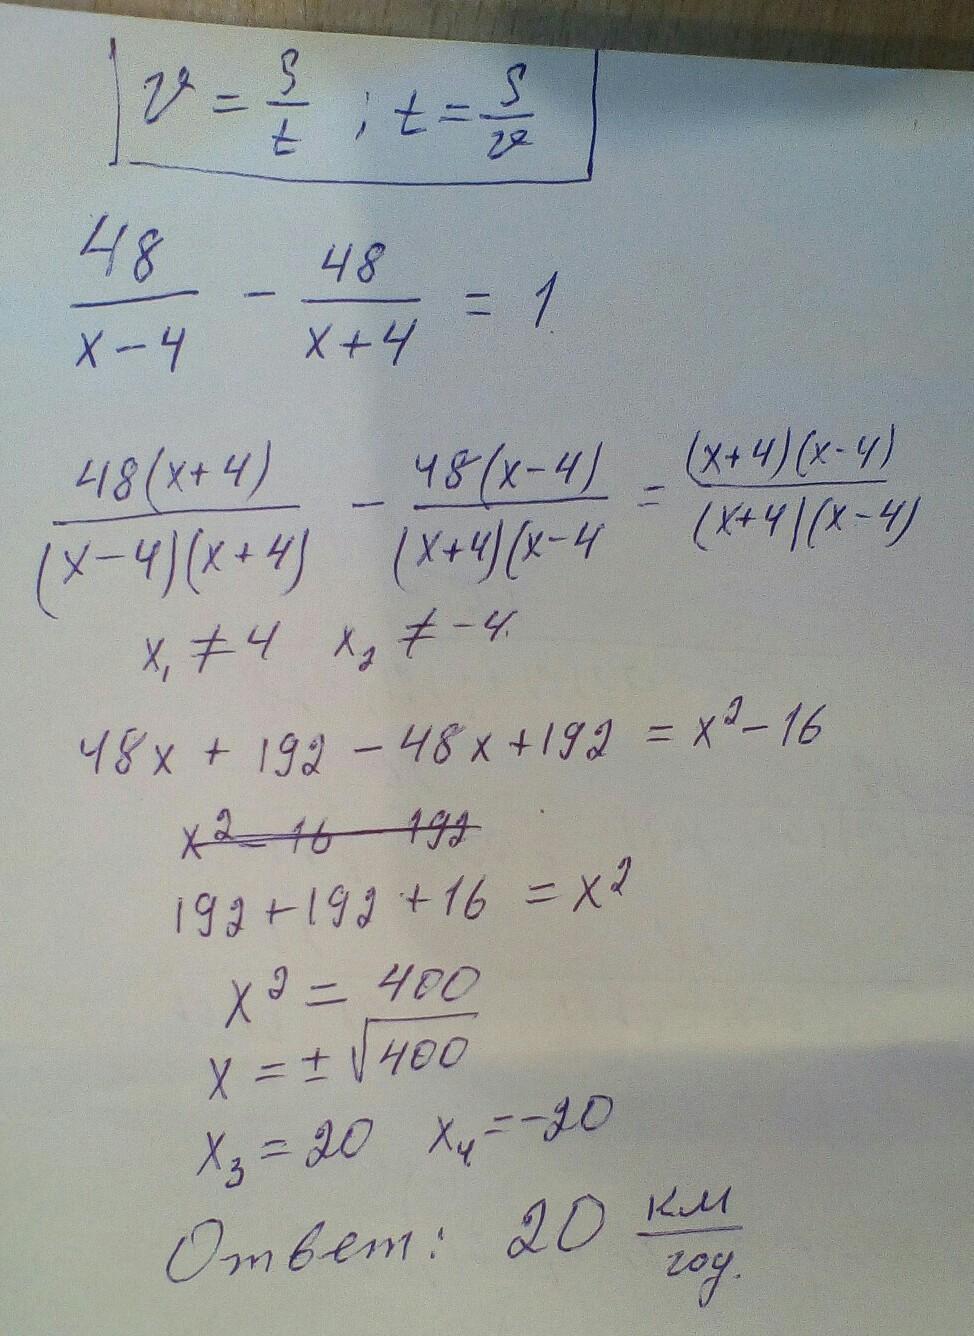 v = S/t ; t = S/v
48/(x-4) - 48/(x+4) = 1
48(x+4)/(x-4)(x+4) - 48(x-4)/(x+4)(x-4 = (x+4)(x-4)/(x+4)(x-4)
x₁ ≠ 4 x₂ ≠ -4.
48x + 192 - 48x + 192 = x² - 16
x² - 16 192
192 + 192 + 16 = x²
x² = 400
x = ± √400
x₃ = 20 x₄ = -20
Ответ: 20 км/год.